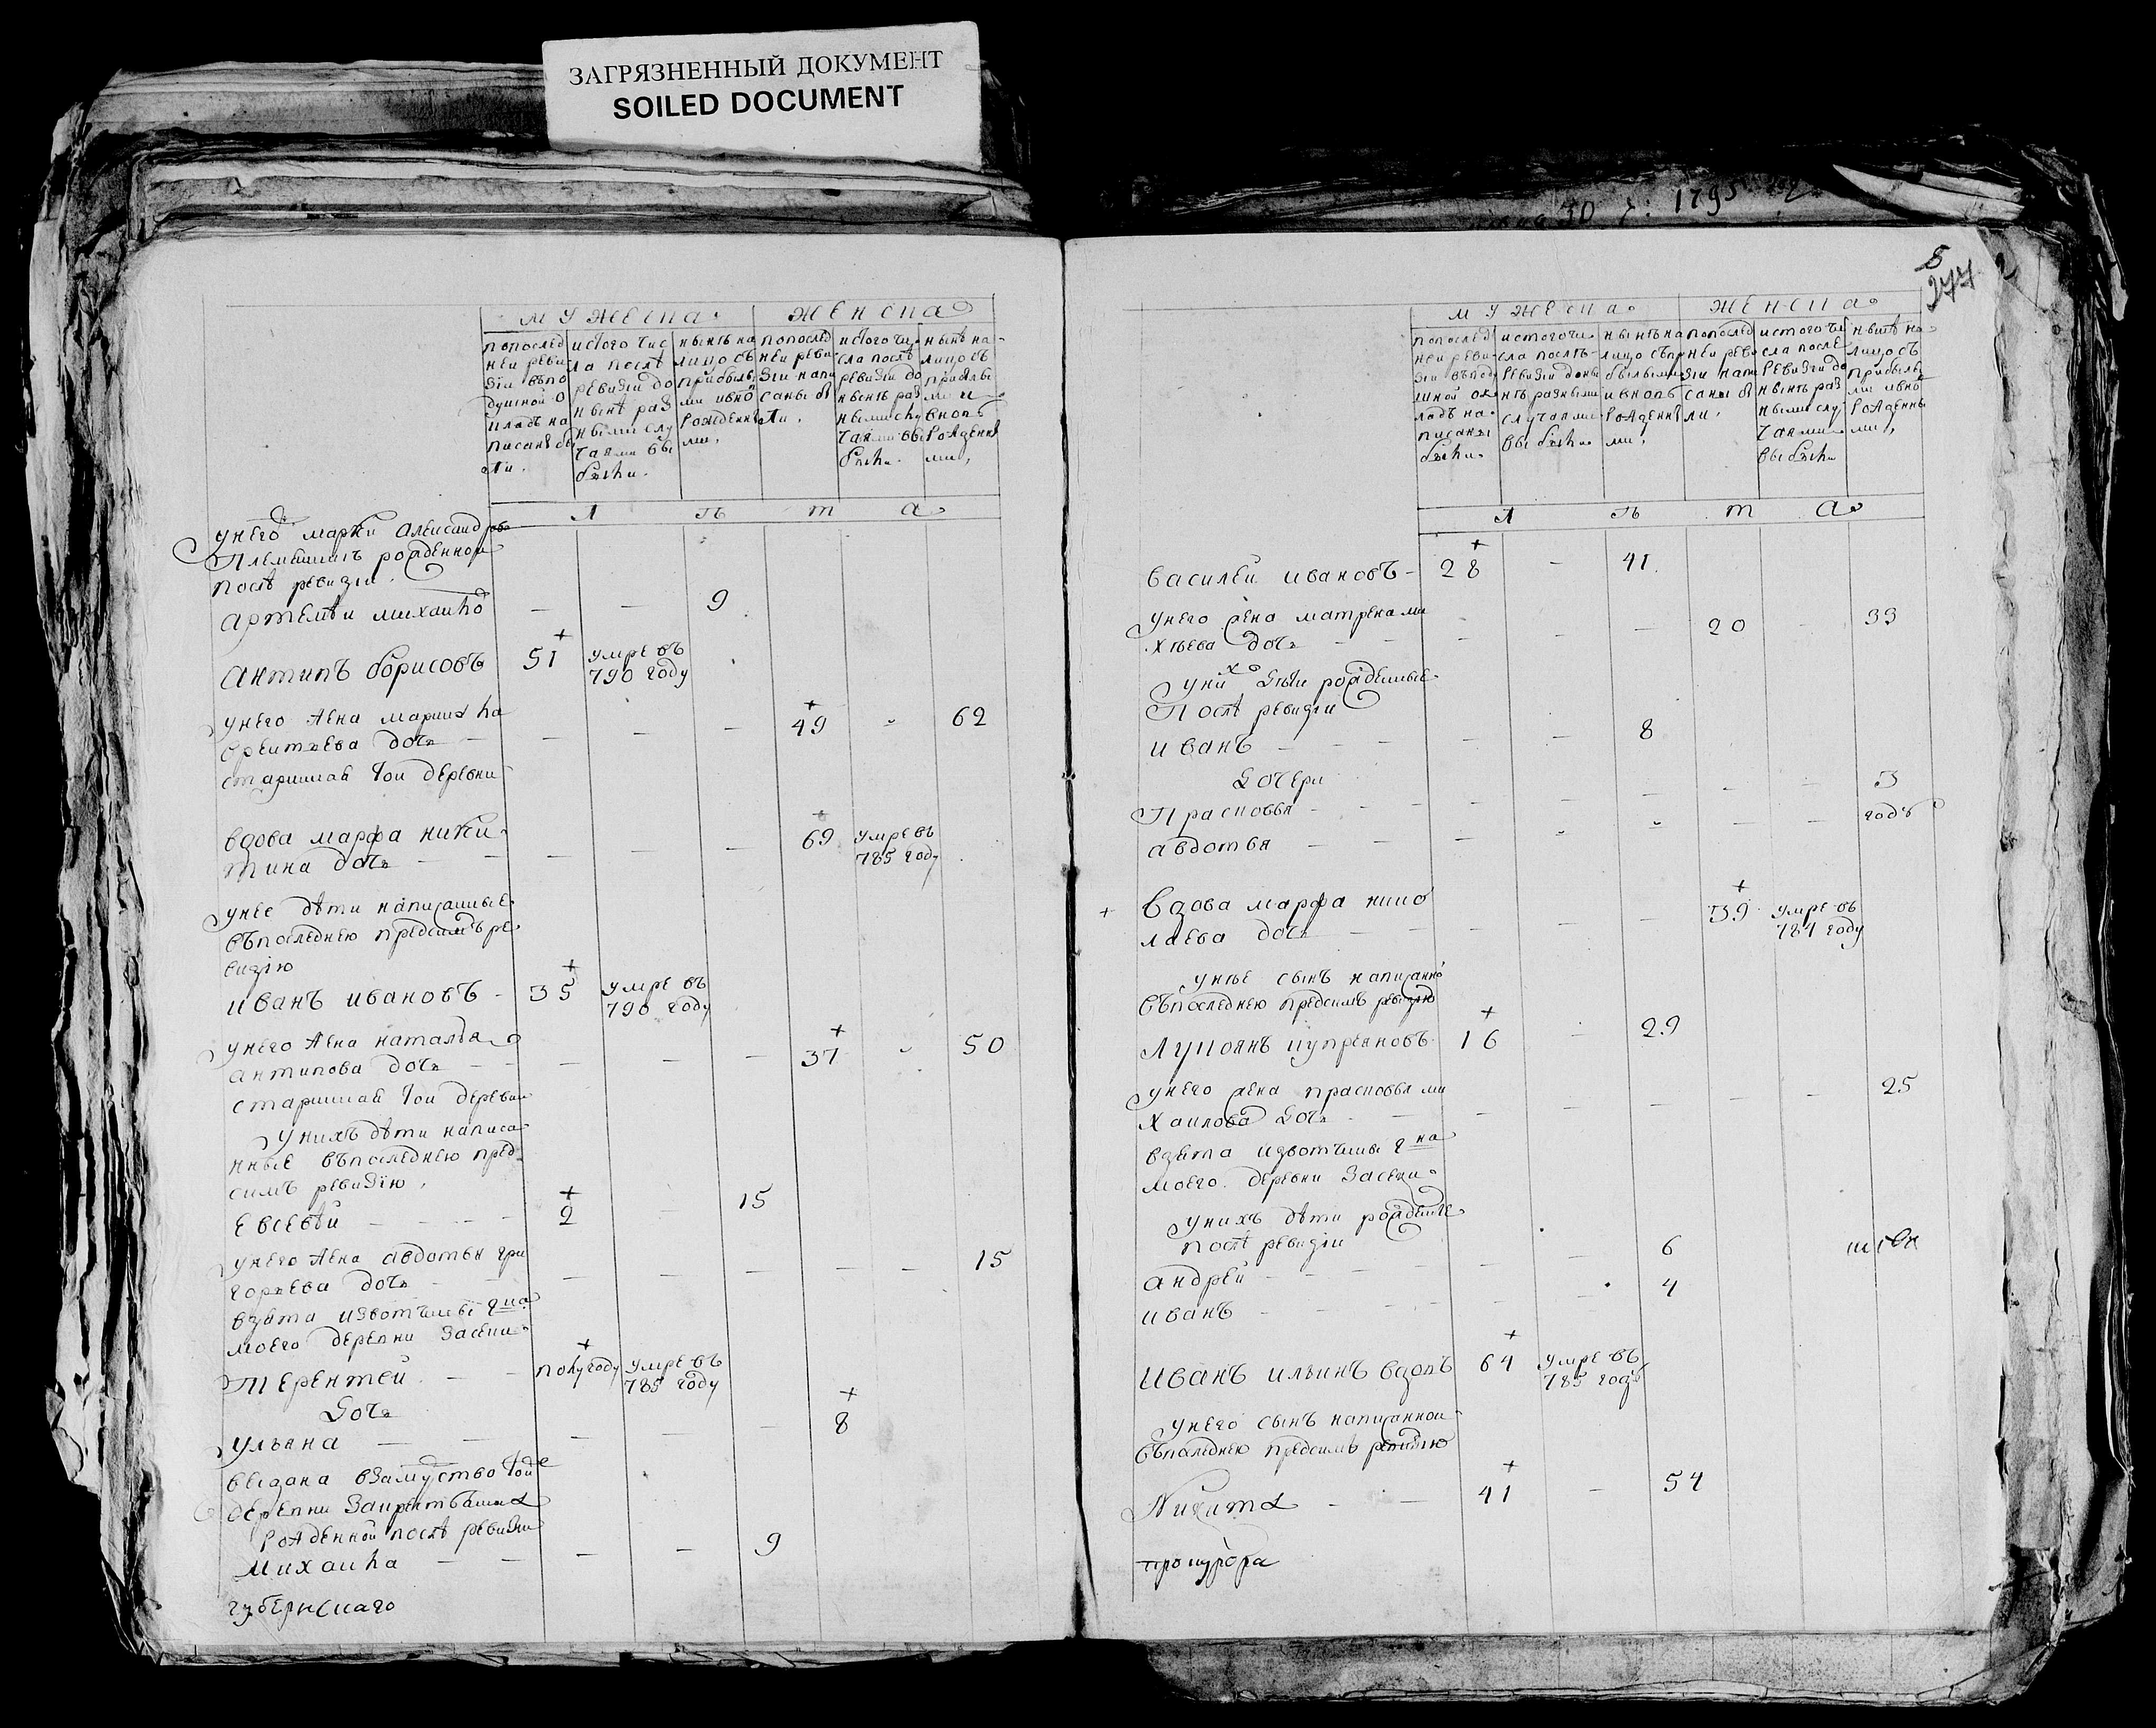 ЗАГРЯЗНЕННЫЙ ДОКУМЕНТ
SOILED DOCUMENT
30 1795
мужеска женска
попослед неи реви зіи въпо душнои о кладъ на писаны бы ли
истого чис ла послѣ ревизіи до нынѣ раз ными слу чаями вы были
нынѣ на лицо съ прибылы ми ивно рожденны ми
попослед неи реви зіи напи саны бы ли
истого чи сла послѣ ревизіи до нынѣ раз ными слу чаями вы были
нынѣ на лицо съ прибылы ми и вновь рожденны ми
л ѣ т а
унего марки александрова
племянникъ рожденной
послѣ ревизіи
артемѣи михаило — — 9
+
антипъ борисовъ 51 умре въ 790 году
унего жена марина
ерентьева дочь — — — — 49 + - 62
старинная тои деревни
вдова марфа ники
тина дочь — — — — — 69 + умре въ 785 году
унее дѣти написанные
въпоследнею предсимъ ре
визію
+
иванъ ивановъ - 35 умре въ 790 году
унего жена наталья
антипова дочь — — — — — 37 + - 50
старинная тои деревни
унихъ дѣти написа
нные въпоследнею пред
симъ ревизію
+
евсевѣи — — 2 — 15
унего жена авдотья гри
горьева дочь — — — — — — 15
взята извотчины гна
моего деревни засеки
+
терентеи — — полугоду умре въ 785 году
дочь
ульяна — — — — — 8 +
выдана взамуство тоиже
деревни закрестьянина
рожденнои послѣ ревизіи
михаила — — — — 9
губернскаго
5
277
мужеска женска
попослед неи реви зіи въпод шнои ок ладъ на писаны были
истогочи сла послѣ ревизіи доны нѣ разными случаями выбыли
нынѣ на лицо съпри былыми ивновь рожденны ми
попослед неи реви зіи напи саны бы ли
истого чи сла после ревизіи до нынѣ раз ными слу чаями выбыли
нынѣ на лицо съ прибылы ми ивно рожденны ми
л ѣ т а
+
василеи ивановъ - 28 - 41
унего жена матрена ми
хѣева дочь — — — — — 20 - 33
унихъ дѣти рожденные
послѣ ревизіи
иванъ — — — — — 8
дочери
прасковья — — — — — — — 3
авдотья — — — — — — — годъ
+ вдова марфа нико
лаева дочь — — — — — 39 + умре въ 784 году
унѣе сынъ написанно
въпоследнею предсимъ ревизію
+
лукоянъ купреяновъ 16 - 29
унего жена прасковья ми
хаилова дочь — — — — — — — 25
взята извотчины гна
моего деревни засеки
унихъ дѣти рожденые
послѣ ревизіи
андреи — — — — — — 6
иванъ — — — — — — 4
+
иванъ ильинъ вдовъ 64 умре въ 785 годъ
унего сынъ написаннои
въпоследнею предсимъ ревизію
+
никита — — 41 - 54
прокурора